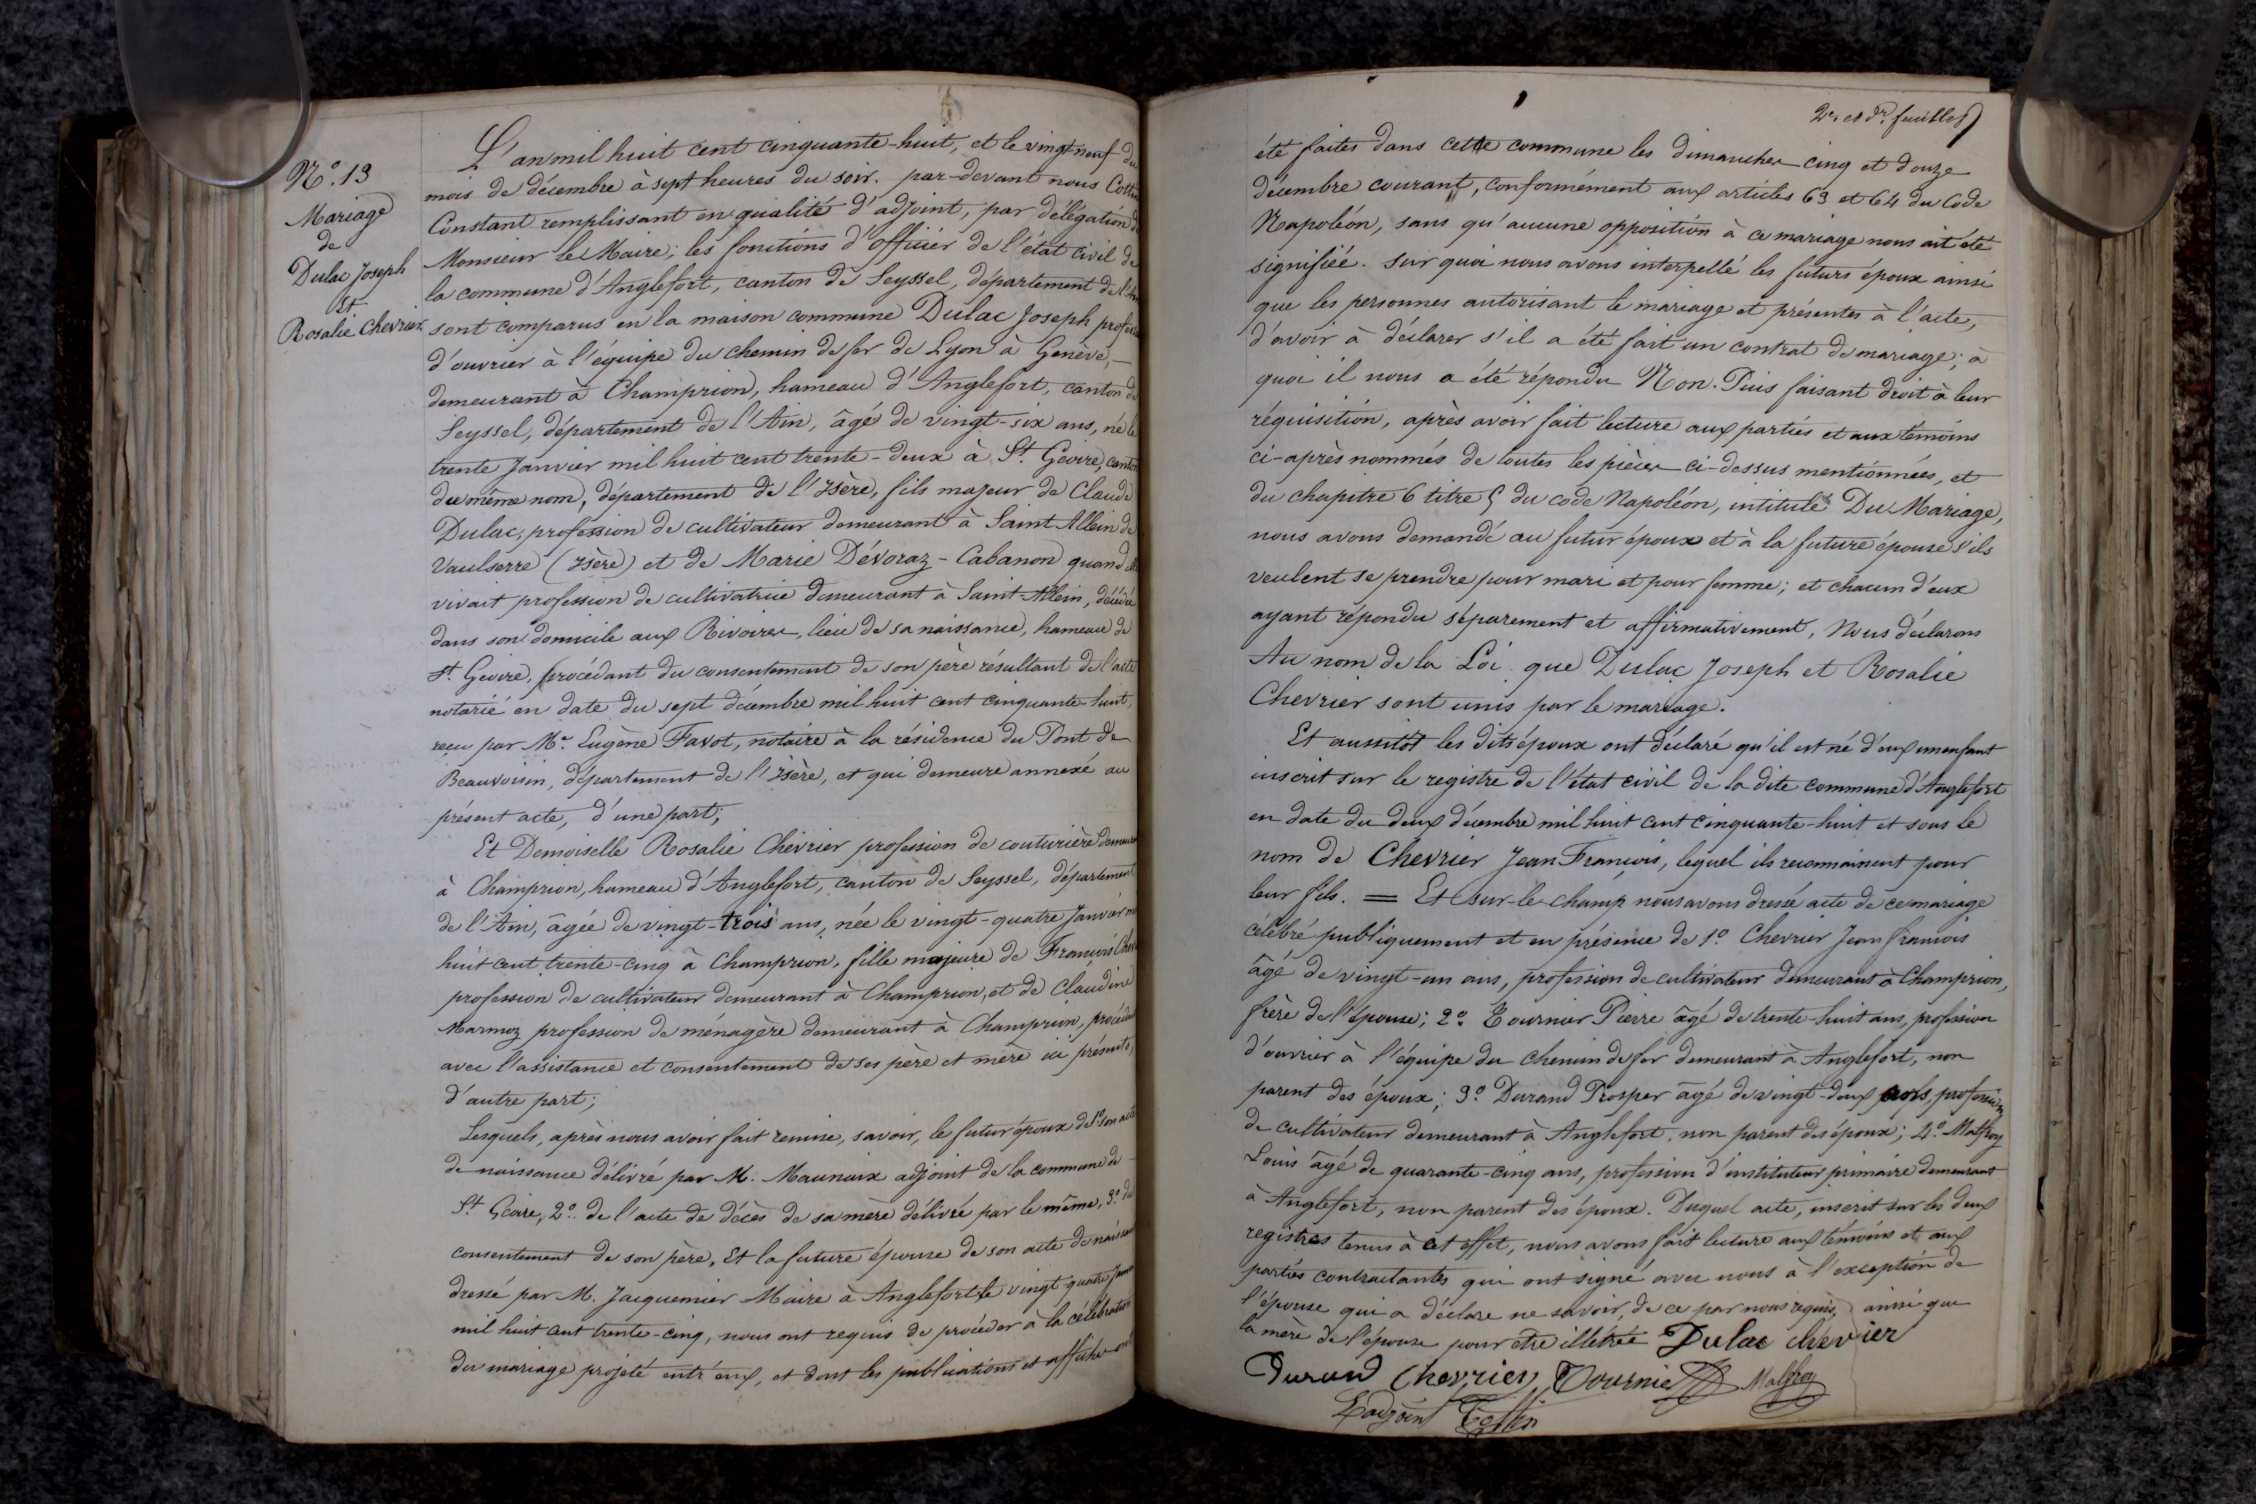 N.° 13
Mariage
de
Dulac Joseph
et
Rosalie Chevrier
L'an mil huit cent cinquante-huit, et le vingt neuf du
mois de décembre à sept heures du soir. par-devant nous
Constant remplissant en qualité d'adjoint, par délégation de
Monsieur le Maire; les fonctions d'officier de l'état civil de
la commune d'Anglefort, canton de Seyssel, département de l'Ain
sont comparus en la maison commune Dulac Joseph
d'ouvrier à l'équipe du chemin de fer de Lyon à Genève,
demeurant à Champrion, hameau d'Anglefort, canton de
Seyssel, département de l'Ain, âgé de vingt-six ans, né le
trente Janvier mil huit cent trente-deux à St. Geoire, canton
du même nom, département de l'Isère, fils majeur de Claude
Dulac, profession de cultivateur demeurant à Saint Albin de
Vaulserre (Isère) et de Marie Dévoraz-Cabanon quand elle
vivait profession de cultivatrice demeurant à Saint-Albin, décédée
dans son domicile aux Rivoires, lieu de sa naissance, hameau de
St. Geoire, procédant du consentement de son père résultant de l'acte
notarié en date du sept décembre mil huit cent cinquante-huit,
reçu par Me. Eugène Favot, notaire à la résidence du Pont de
Beauvoisin, département de l'Isère, et qui demeure annexé au
présent acte, d'une part;
Et Demoiselle Rosalie Chevrier profession de couturière
à Champrion, hameau d'Anglefort, canton de Seyssel, département
de l'Ain, âgée de vingt-trois ans, née le vingt-quatre Janvier
huit cent trente-cinq à Champrion, fille majeure de François
profession de cultivateur demeurant à Champrion, et de Claudine
Marmoz profession de ménagère demeurant à Champrion,
avec l'assistance et consentement de ses père et mère ici présents,
d'autre part;
Lesquels, après nous avoir fait remise, savoir, le futur époux de 1° son acte
de naissance délivré par M. Maunoix adjoint de la commune de
St. Geoire, 2.° de l'acte de décès de sa mère délivré par le même, 3.° du
consentement de son père, Et la future épouse de son acte de
dressé par M. Jacquemier Maire à Anglefort le vingt quatre
mil huit cent trente-cinq, nous ont requis de procéder à la célébration
du mariage projeté entr'eux, et dont les publications et affiches
2e. et dr. feuillet
été faites dans cette commune les dimanches cinq et douze
décembre courant, conformément aux articles 63 et 64 du Code
Napoléon, sans qu'aucune opposition à ce mariage nous ait été
signifiée. sur quoi nous avons interpellé les futurs époux ainsi
que les personnes autorisant le mariage et présentes à l'acte,
d'avoir à déclarer s'il a été fait un contrat de mariage; à
quoi il nous a été répondu Non. Puis faisant droit à leur
réquisition, après avoir fait lecture aux parties et aux témoins
ci-après nommés de toutes les pièces ci-dessus mentionnées, et
du chapitre 6 titre 5 du code Napoléon, intitulé Du Mariage,
nous avons demandé au futur époux et à la future épouse s'ils
veulent se prendre pour mari et pour femme; et chacun d'eux
ayant répondu séparement et affirmativement, Nous déclarons
Au nom de la Loi que Dulac Joseph et Rosalie
Chevrier sont unis par le mariage.
Et aussitôt les dits époux ont déclaré qu'il est né d'eux un enfant
inscrit sur le registre de l'état civil de la dite commune d'Anglefort
en date du deux décembre mil huit cent cinquante-huit et sous le
nom de Chevrier Jean François, lequel ils reconnaissent pour
leur fils. = Et sur-le-champ nous avons dressé acte de ce mariage
célébré publiquement et en présence de 1.° Chevrier Jean François
âgé de vingt-un ans, profession de cultivateur demeurant à Champrion,
frère de l'épouse; 2.° Tournier Pierre âgé de trente-huit ans, profession
d'ouvrier à l'équipe du chemin de fer demeurant à Anglefort, non
parent des époux; 3.° Durand Prosper âgé de vingt-deux ans, profession
de cultivateur demeurant à Anglefort, non parent des époux; 4.° Malfroy
Louis âgé de quarante-cinq ans, profession d'instituteur primaire demeurant
à Anglefort, non parent des époux. Duquel acte, inscrit sur les deux
registres tenus à cet effet, nous avons fait lecture aux témoins et aux
parties contractantes qui ont signé avec nous à l'exception de
l'épouse qui a déclaré ne savoir, de ce par nous requis, ainsi que
la mère de l'épouse pour être illétrée Dulac chevrier
Durand Chevrier Tournier Malfroy
L'adjoint